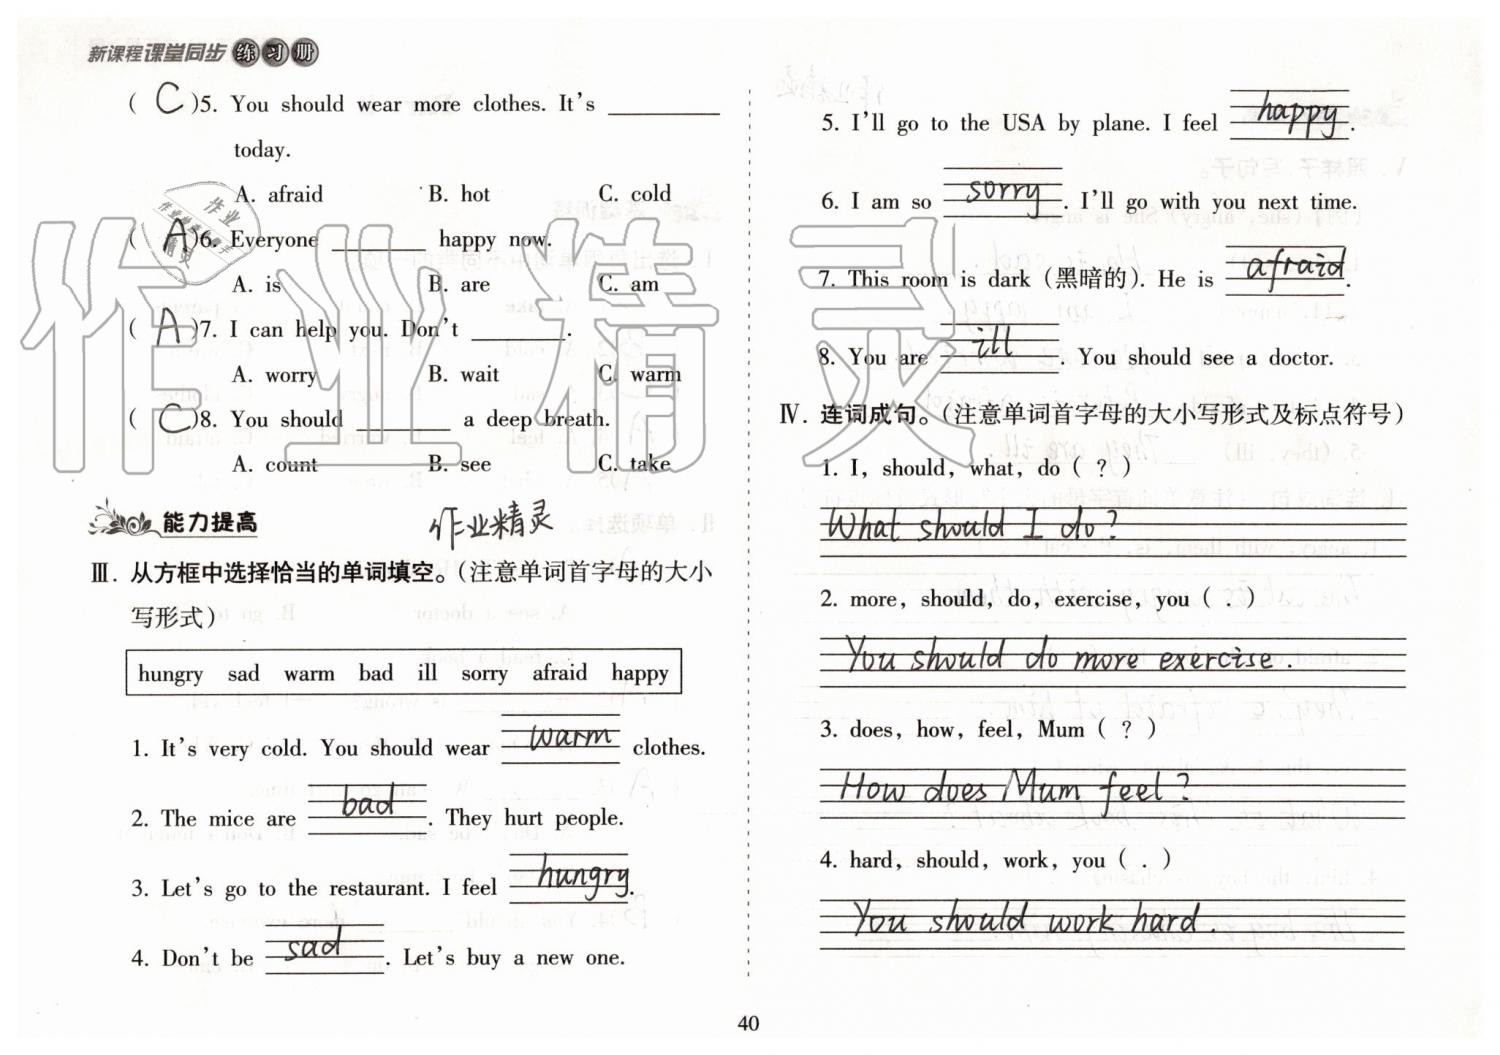 新课程课堂同步练习册
( C )5. You should wear more clothes. It's ________
today.
A. afraid B. hot C. cold
( A )6. Everyone ________ happy now.
A. is B. are C. am
( A )7. I can help you. Don't ________.
A. worry B. wait C. warm
( C )8. You should ________ a deep breath.
A. count B. see C. take
能力提高
作业精灵
Ⅲ. 从方框中选择恰当的单词填空。(注意单词首字母的大小
写形式)
hungry sad warm bad ill sorry afraid happy
1. It's very cold. You should wear warm clothes.
2. The mice are bad. They hurt people.
3. Let's go to the restaurant. I feel hungry.
4. Don't be sad. Let's buy a new one.
5. I'll go to the USA by plane. I feel happy.
6. I am so sorry. I'll go with you next time.
7. This room is dark (黑暗的). He is afraid.
8. You are ill. You should see a doctor.
Ⅳ. 连词成句。(注意单词首字母的大小写形式及标点符号)
1. I, should, what, do ( ? )
What should I do?
2. more, should, do, exercise, you ( . )
You should do more exercise.
3. does, how, feel, Mum ( ? )
How does Mum feel?
4. hard, should, work, you ( . )
You should work hard.
40
作业精灵